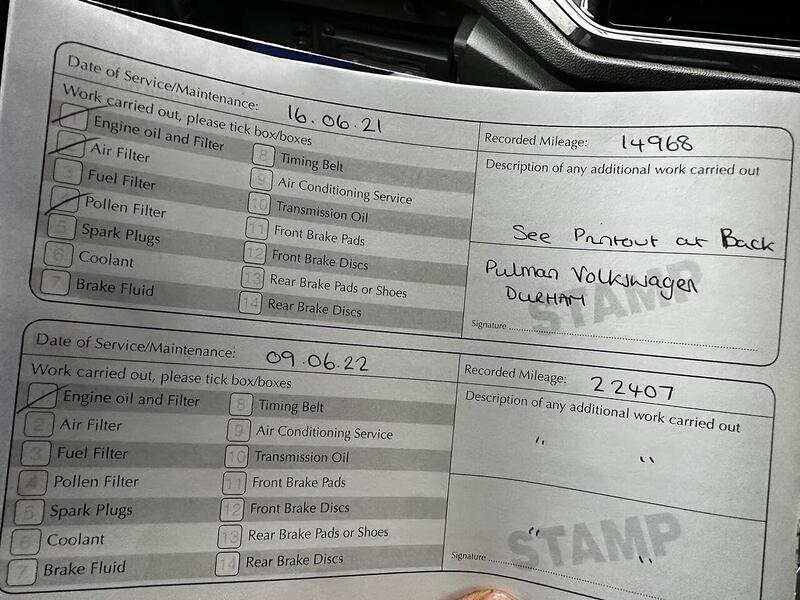 Date of Service/Maintenance: 16.06.21
Work carried out, please tick box/boxes
Engine oil and Filter
Air Filter
3 Fuel Filter
Pollen Filter
5 Spark Plugs
6 Coolant
7 Brake Fluid
8 Timing Belt
9 Air Conditioning Service
10 Transmission Oil
11 Front Brake Pads
12 Front Brake Discs
13 Rear Brake Pads or Shoes
14 Rear Brake Discs
Recorded Mileage: 14968
Description of any additional work carried out
See Printout at Back
Pulman Volkswagen
DURHAM
STAMP
Signature
Date of Service/Maintenance: 09.06.22
Work carried out, please tick box/boxes
Engine oil and Filter
2 Air Filter
3 Fuel Filter
4 Pollen Filter
5 Spark Plugs
6 Coolant
7 Brake Fluid
8 Timing Belt
9 Air Conditioning Service
10 Transmission Oil
11 Front Brake Pads
12 Front Brake Discs
13 Rear Brake Pads or Shoes
14 Rear Brake Discs
Recorded Mileage: 22407
Description of any additional work carried out
" "
" "
STAMP
Signature